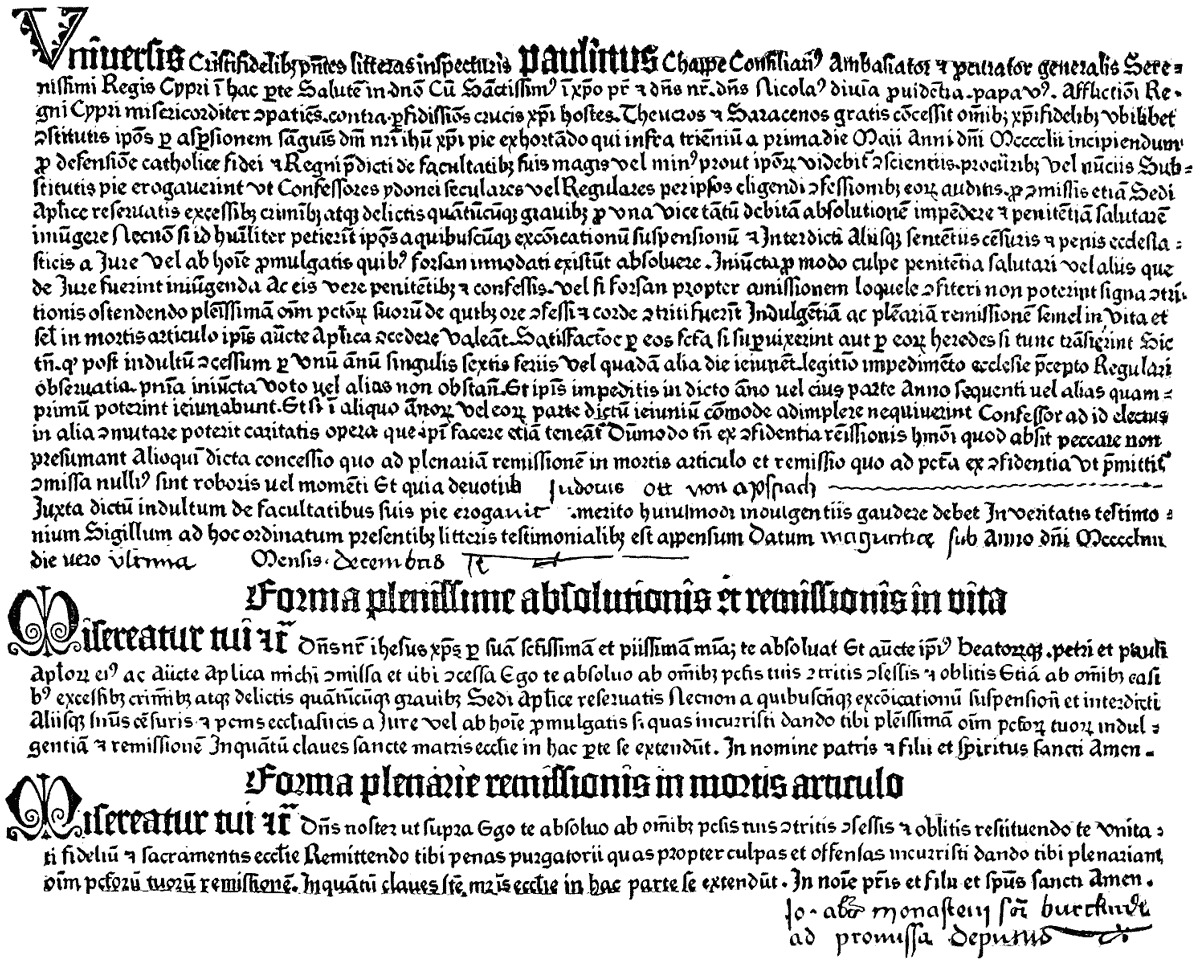 Vniuersis Cristifidelibꝫ pñtes litteras inspecturis Paulinus Chappe Consiliariꝰ Ambasiator ⁊ ꝓcurator generalis Sere⸗
nissimi Regis Cypri ī hac ꝑte Salutē in dño Cū Sāctissimꝰ ī xp̄o pr̄ ⁊ dñs nr̄. dñs Nicolaꝰ diuīa ꝓuidētia. papa vꝰ. Afflictiōi Re⸗
gni Cypri misericorditer ↄpatiēs. contra ꝑfidissiōs crucis xp̄i hostes. Theucros ⁊ Saracenos gratis cōcessit om̄ibꝫ xp̄ifidelibꝫ vbilibet
ↄstitutis ipōs ꝑ aspsionem sāguīs dn̄i nr̄i ih̄u xp̄i pie exhortādo qui infra triēniū a prima die Maii Anni dn̄i Mcccclii incipiendum
ꝓ defensiōe catholice fidei ⁊ Regni p̄dicti de facultatibꝫ suis magis vel minꝰ prout ipōꝝ videbit̄ ↄscientiis. procuratoribꝫ vel nūciis Sub⸗
stitutis pie erogauerint vt Confessores ydonei seculares vel Regulares per ipsos eligendi ↄfessionibꝫ eoꝝ auditis. ꝓ ↄmissis etiā Sedi
Aplice reseruatis excessibꝫ crimībꝫ atqꝫ delictis quātūcūqꝫ grauibꝫ ꝓ vna vice tātū debitā absolutionē impēdere ⁊ penitētiā salutarē
iniūgere Necnō si id hūiliter petierīt ipōs a quibuscūqꝫ excōicationū suspensionū ⁊ Interdicti Aliisqꝫ sententiis cēsuris ⁊ penis ecclesia ⸗
sticis a Jure vel ab hoīe ꝓmulgatis quibꝰ forsan innodati existūt absoluere. Iniūcta ꝓ modo culpe penitētia salutari vel aliis que
de Jure fuerint iniūgenda Ac eis vere penitētibꝫ ⁊ confessis. vel si forsan propter amissionem loquele ↄfiteri non poterīt signa ↄtri⸗
tionis ostendendo plēissimā oīm pctoꝝ suoꝝ de quibꝫ ore ↄfessi ⁊ corde ↄtriti fuerīt Indulgētiā ac plēariā remissionē semel in vita et
sel̄ in mortis articulo ipīs aūcte Apl̄ica ↄcedere valeāt. Satisfactōe ꝑ eos fc̄ta si supuixerint aut ꝑ eoꝝ heredes si tunc trāsierint Sic
tn̄. qꝫ post indultū ↄcessum ꝑ vnū annū singulis sextis feriis vel quadā alia die ieiunēt. legitiō impedimēto ecclesie p̄cepto Regulari
obseruātia. pn̄ia iniūcta voto uel alias non obstan̄. Et ipīs impeditis in dicto āno uel eius parte Anno sequenti uel alias quam⸗
primū poterint ieiunabunt. Et si ī aliquo ānoꝝ vel eoꝝ parte dictū ieiuniū cōmode adimplere nequiuerint Confessor ad id electus
in alia ↄmutare poterit caritatis opera que ipī facere etiā teneāt̄ Dūmodo tn̄ ex ↄfidentia rēissionis hmōi quod absit peccare non
presumant Alioqui dicta concessio quo ad plenariā remissionē in mortis articulo et remissio quo ad pctā ex ↄfidentia vt p̄mittit̄
ↄmissa nulliꝰ sint roboris uel momēti Et quia deuotus Judouis Ott von apspach
Juxta dictū indultum de facultatibus suis pie erogauit merito huiusmodi indulgentiis gaudere debet In veritatis testimo ⸗
nium Sigillum ad hoc ordinatum presentibꝫ litteris testimonialibꝫ est appensum Datum maguntie sub Anno dn̄i Mccccliiii
die uero vltima Mensis. decembris
Forma plenissime absolutionis et remissionis in vita
Misereatur tui ⁊c̄ Dn̄s nr̄ ihesus xp̄s ꝑ suā sctīssimā et piissimā mīaꝫ te absoluat Et aūcte ipīꝰ beatoꝝqꝫ. petri et pauli
Aploꝝ eiꝰ ac Aūcte Aplica michi ↄmissa et tibi ↄcessa Ego te absoluo ab om̄ibꝫ pctis tuis ↄtritis ↄfessis ⁊ oblitis Etiā ab om̄ibꝫ casi
bꝰ excessibꝫ crimībꝫ atqꝫ delictis quātūcūqꝫ grauibꝫ Sedi Aplice reseruatis Necnon a quibuscūqꝫ excōicationū suspension̄ et interdicti
Aliisqꝫ sn̄iis cēsuris ⁊ penis ecclesiasticis a Jure vel ab hoīe ꝓmulgatis si quas incurristi dando tibi plēissimā oīm pctoꝝ tuoꝝ indul ⸗
gentiā ⁊ remissionē Inquātū claues sancte matris eccl̄ie in hac ꝑte se extendūt. In nomine patris ⁊ filii et spiritus sancti Amen.
Forma plenarie remissionis in mortis articulo
Misereatur tui ⁊c̄ Dn̄s noster ut supra Ego te absoluo ab om̄ibꝫ pctis tuis ↄtritis ↄfessis ⁊ oblitis restituendo te vnita ⸗
ti fideliū ⁊ sacramentis eccl̄ie Remittendo tibi penas purgatorii quas propter culpas et offensas incurristi dando tibi plenariam
oīm pctorū tuorū remissionē. Inquātū claues stē. mr̄is eccl̄ie in hac parte se extendūt. In noīe pr̄is et filii et sp̄us sancti Amen.
Jo. abbas monasterii sc̄i burckardi
ad premissa deputatus